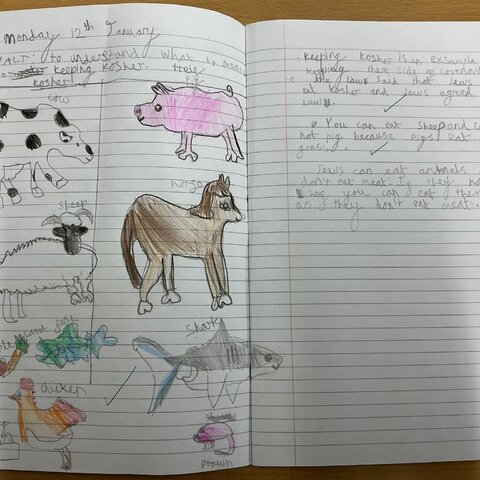 Monday 12th January
WALT: to understand what it means
to keeping kosher.
kosher
treif
cow
pig
horse
sheep
carrot fish
shark
chicken
prawn
Keeping kosher is an exsample
keeping there side of covenant
the law said that jews
eat kosher and jews agreed
law.
You can eat sheep and c
not pig because pigs eat
grass.
Jews can eat animals
don't eat meat. If they ha
you can eat the
as they don't eat meat.